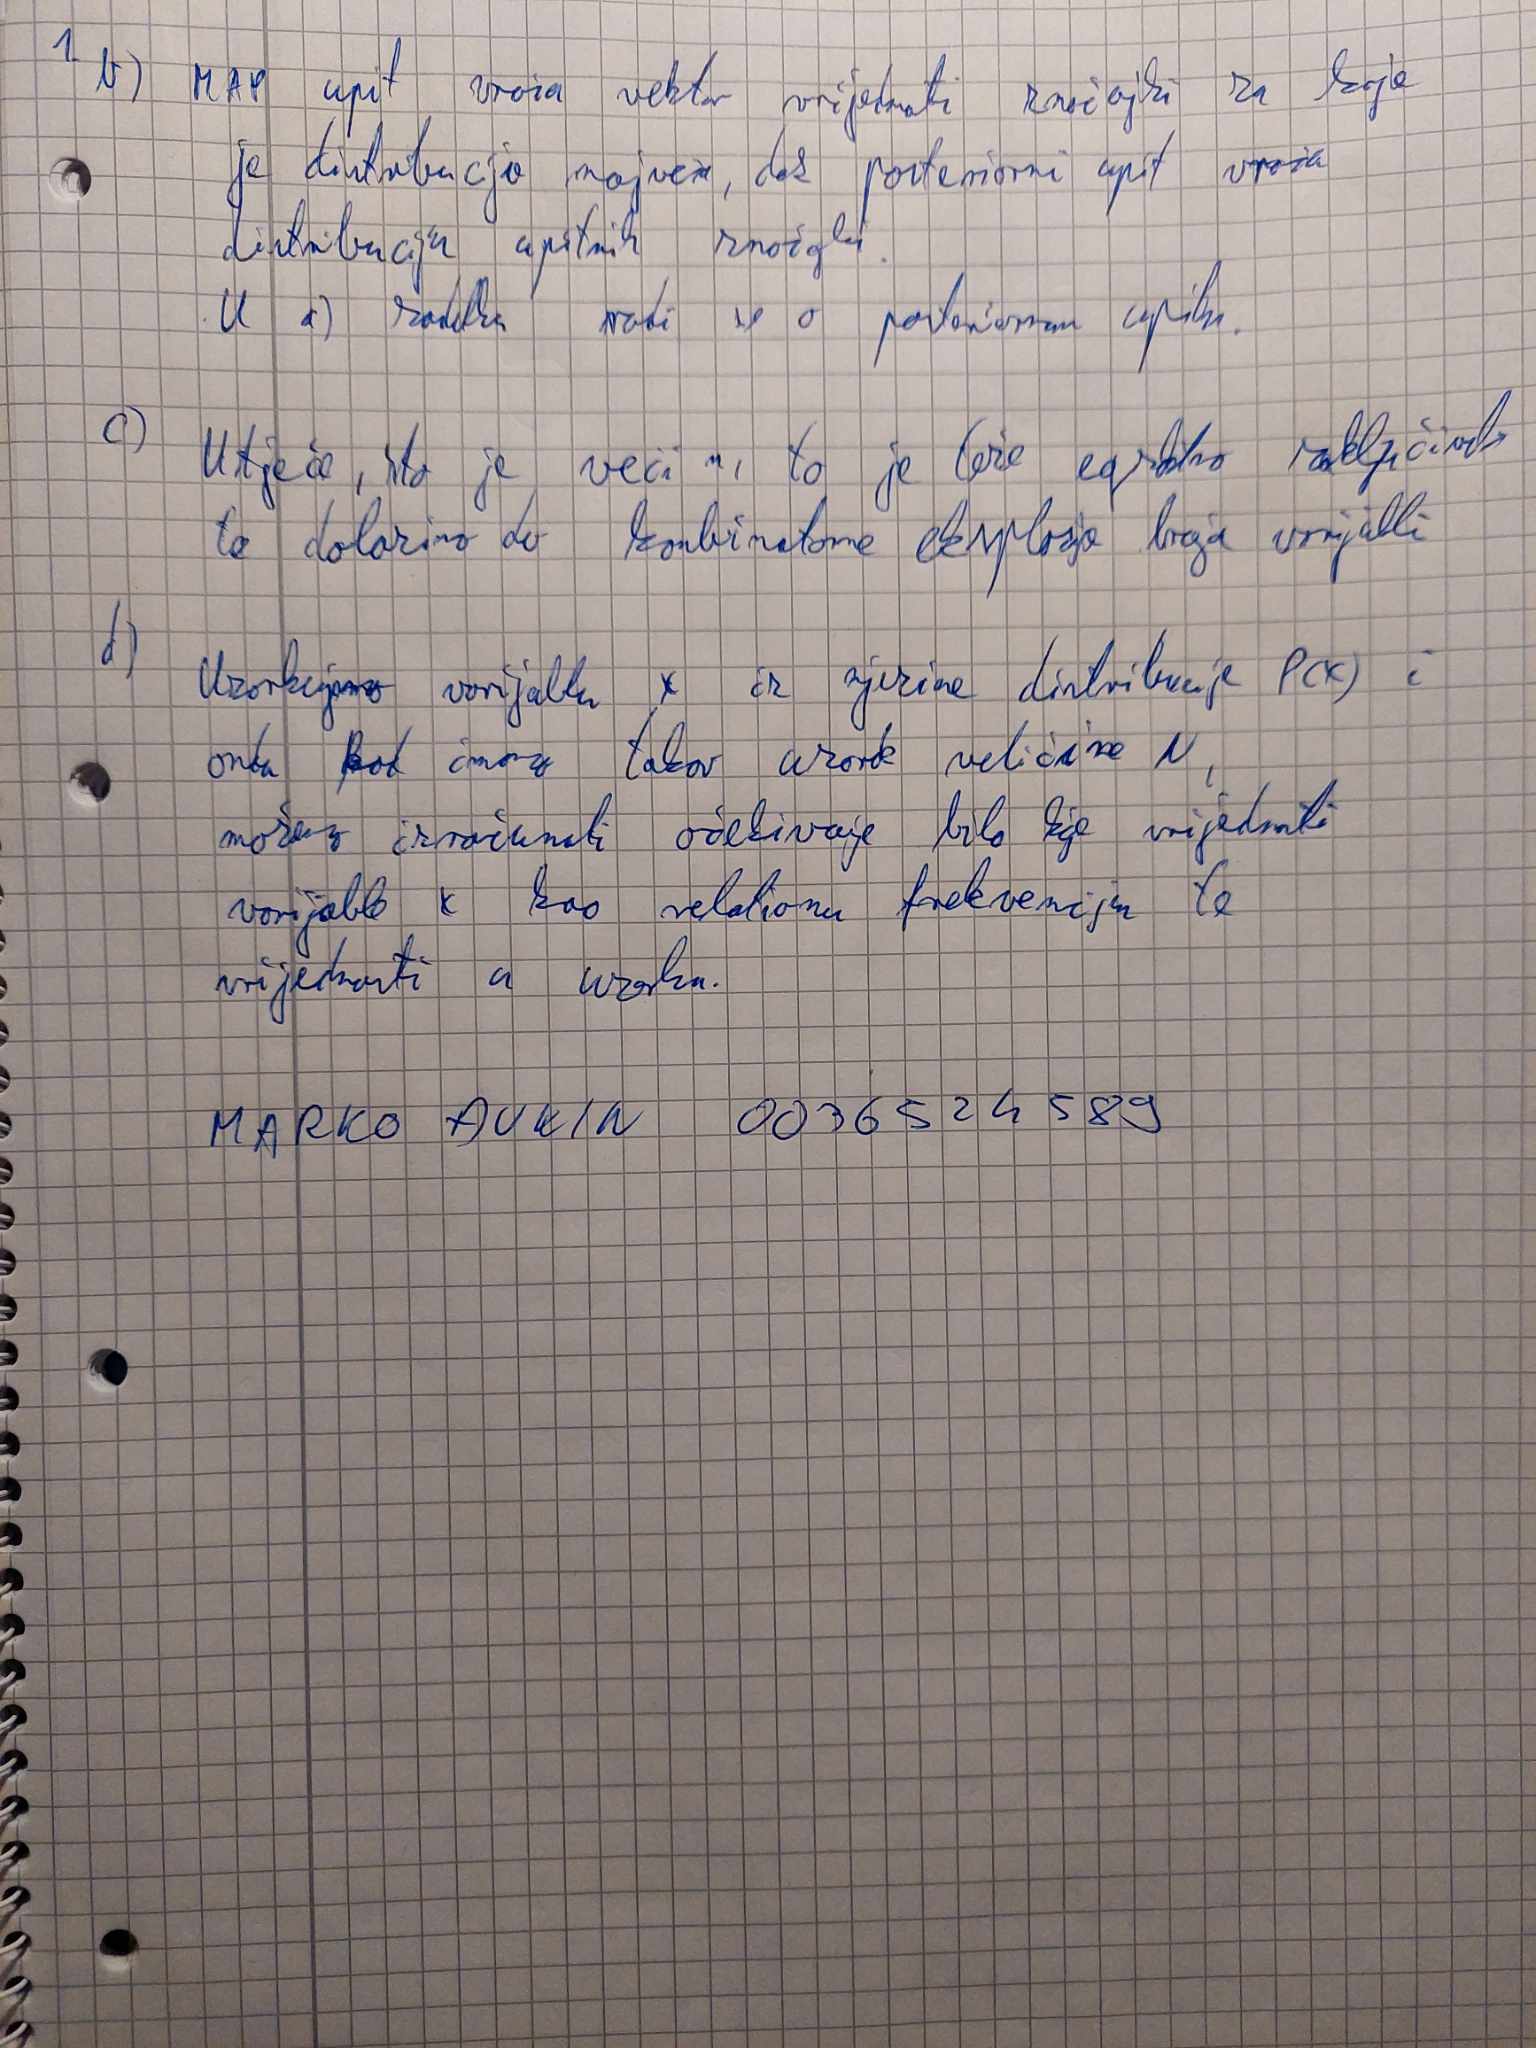 1.
b) MAP upit vraća vektor vrijednosti značajki za koje
je distribucija najveća, dok posteriorni upit vraća
distribuciju upitnih značajki.
U a) zadatku radi se o posteriornom upitu.
c) Utječe, što je veći n, to je teže egzaktno zaključivanje
te dolazimo do kombinatorne eksplozije broja varijabli
d) Uzorkujemo varijablu x iz njezine distribucije P(x) i
onda kad imamo takav uzorak veličine N,
možemo izračunati očekivanje bilo koje vrijednosti
varijable x kao relativnu frekvenciju te
vrijednosti u uzorku.
MARKO 0036524589